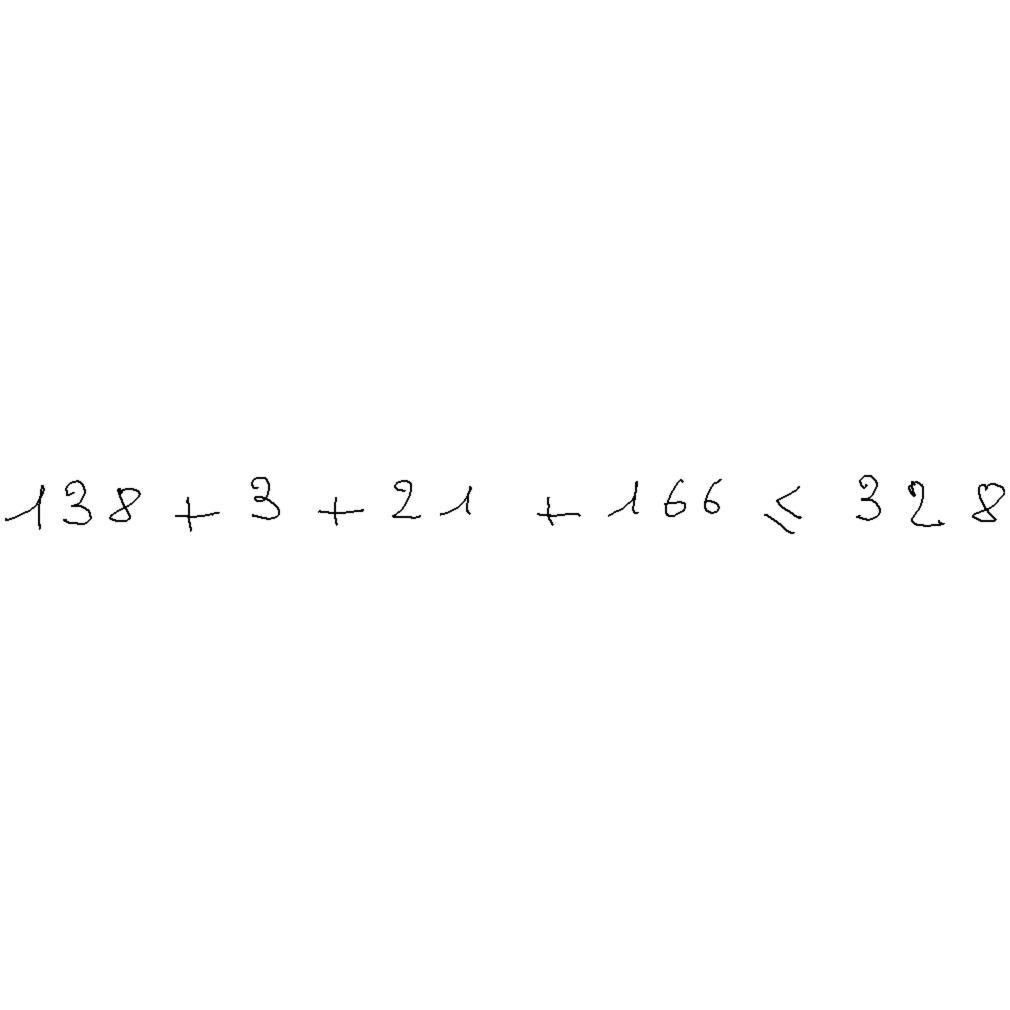 138 + 3 + 21 + 166 ≤ 328